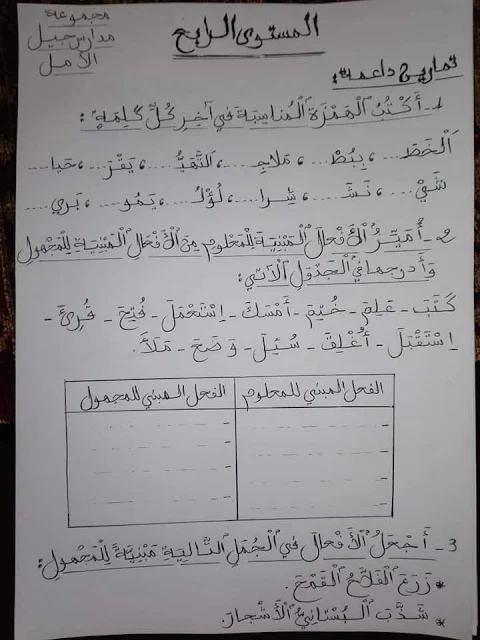 مجموعة
مدارس جيل
الأمل
المستوى الرابع
تمارين داعمة:
1- أَكْتُبُ الْهَمْزَةَ الْمُنَاسِبَةَ فِي آخِرِ كُلِّ كَلِمَةٍ:
اَلْخَطَـ....، يُبْطِـ....، مَلَاجِـ....، اَلتَّهَيُّـ....، يَقْرَ....، حَيا....
شَيْ....، نَشَـ....، شِرا....، لُؤْلُـ....، يَمُو....، بَري....
2- أُمَيِّزُ الْأَفْعالَ الْمَبْنِيَةَ لِلْمَعْلومِ مِنَ الْأَفْعَالِ الْمَبْنِيَةِ لِلْمَجْهولِ
وَأُدرجها في الْجَدْوَلِ الْآتي:
كَتَبَ - عَلِمَ - خُتِمَ - أَمْسَكَ - اِسْتَعْمَلَ - فُتِحَ - قُرِئَ -
اِسْتَقْبَلَ - أُغْلِقَ - سُئِلَ - وَضَحَ - مَلَأَ.
الفعل المبني للمعلوم الفعل المبني للمجهول
- -
- -
- -
- -
3- أَجْعَلُ الْأَفْعَالَ فِي الْجُمَلِ التَّالِيَةِ مَبْنِيَةً لِلْمَجْهولِ:
* زَرَعَ الْفَلَّاحُ الْقَمْحَ.
* شَذَّبَ الْبُسْتَانِيُّ الْأَشْجارَ.